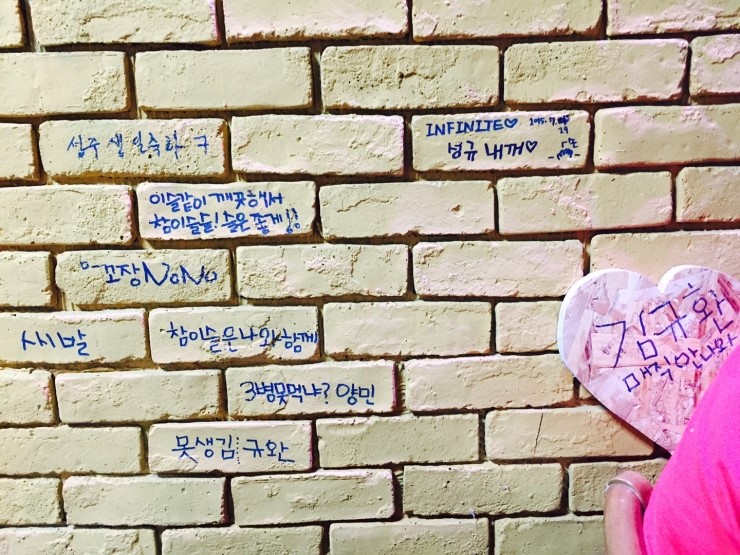 INFINITE♡
성규 내꺼♡
성주 생일축하
이슬같이 깨끗해서
참이슬! 술은 좋게!
꼬장NoNo
시발
참이슬은나와함께
3병못먹냐? 양민
못생김 규완
김규완
매직안나와